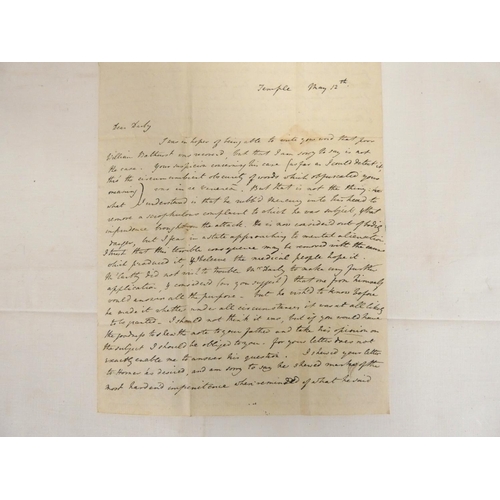 Temple May 12th
Dear Darby
I was in hopes of being able to write you word that poor
William Bathurst was recovered, but that I am sorry to say is not
the case. Your suspicion concerning his case (as far as I could detect it,
thro' the circumambient obscurity of words which obfuscated your
meaning) was in erroneous. But that is not the thing, for
what I understand is that he rubbed mercury into his head to
remove a scrophulous complaint to which he was subject, & that
imprudence brought on the attack. He is now considered out of bodily
danger, but I fear in a state approaching to mental alienation.
I trust that this terrible consequence may be removed with the cause
which produced it, & I believe the medical people hope it.
did not wish to trouble Mr Darby to make any further
application, & considered (as you suggest) that one from himself
would answer all the purpose. But he wished to know before
he made it whether under all circumstances it was at all likely
to be granted. I should not think it was, but if you would have
the goodness to shew the note to your father and take his opinion on
the subject I should be obliged to you. for your letter does not
exactly enable me to answer his question. I shewed your letter
to Horner as desired, and am sorry to say he shewed marks of the
most hardened impenitence when reminded of what he said